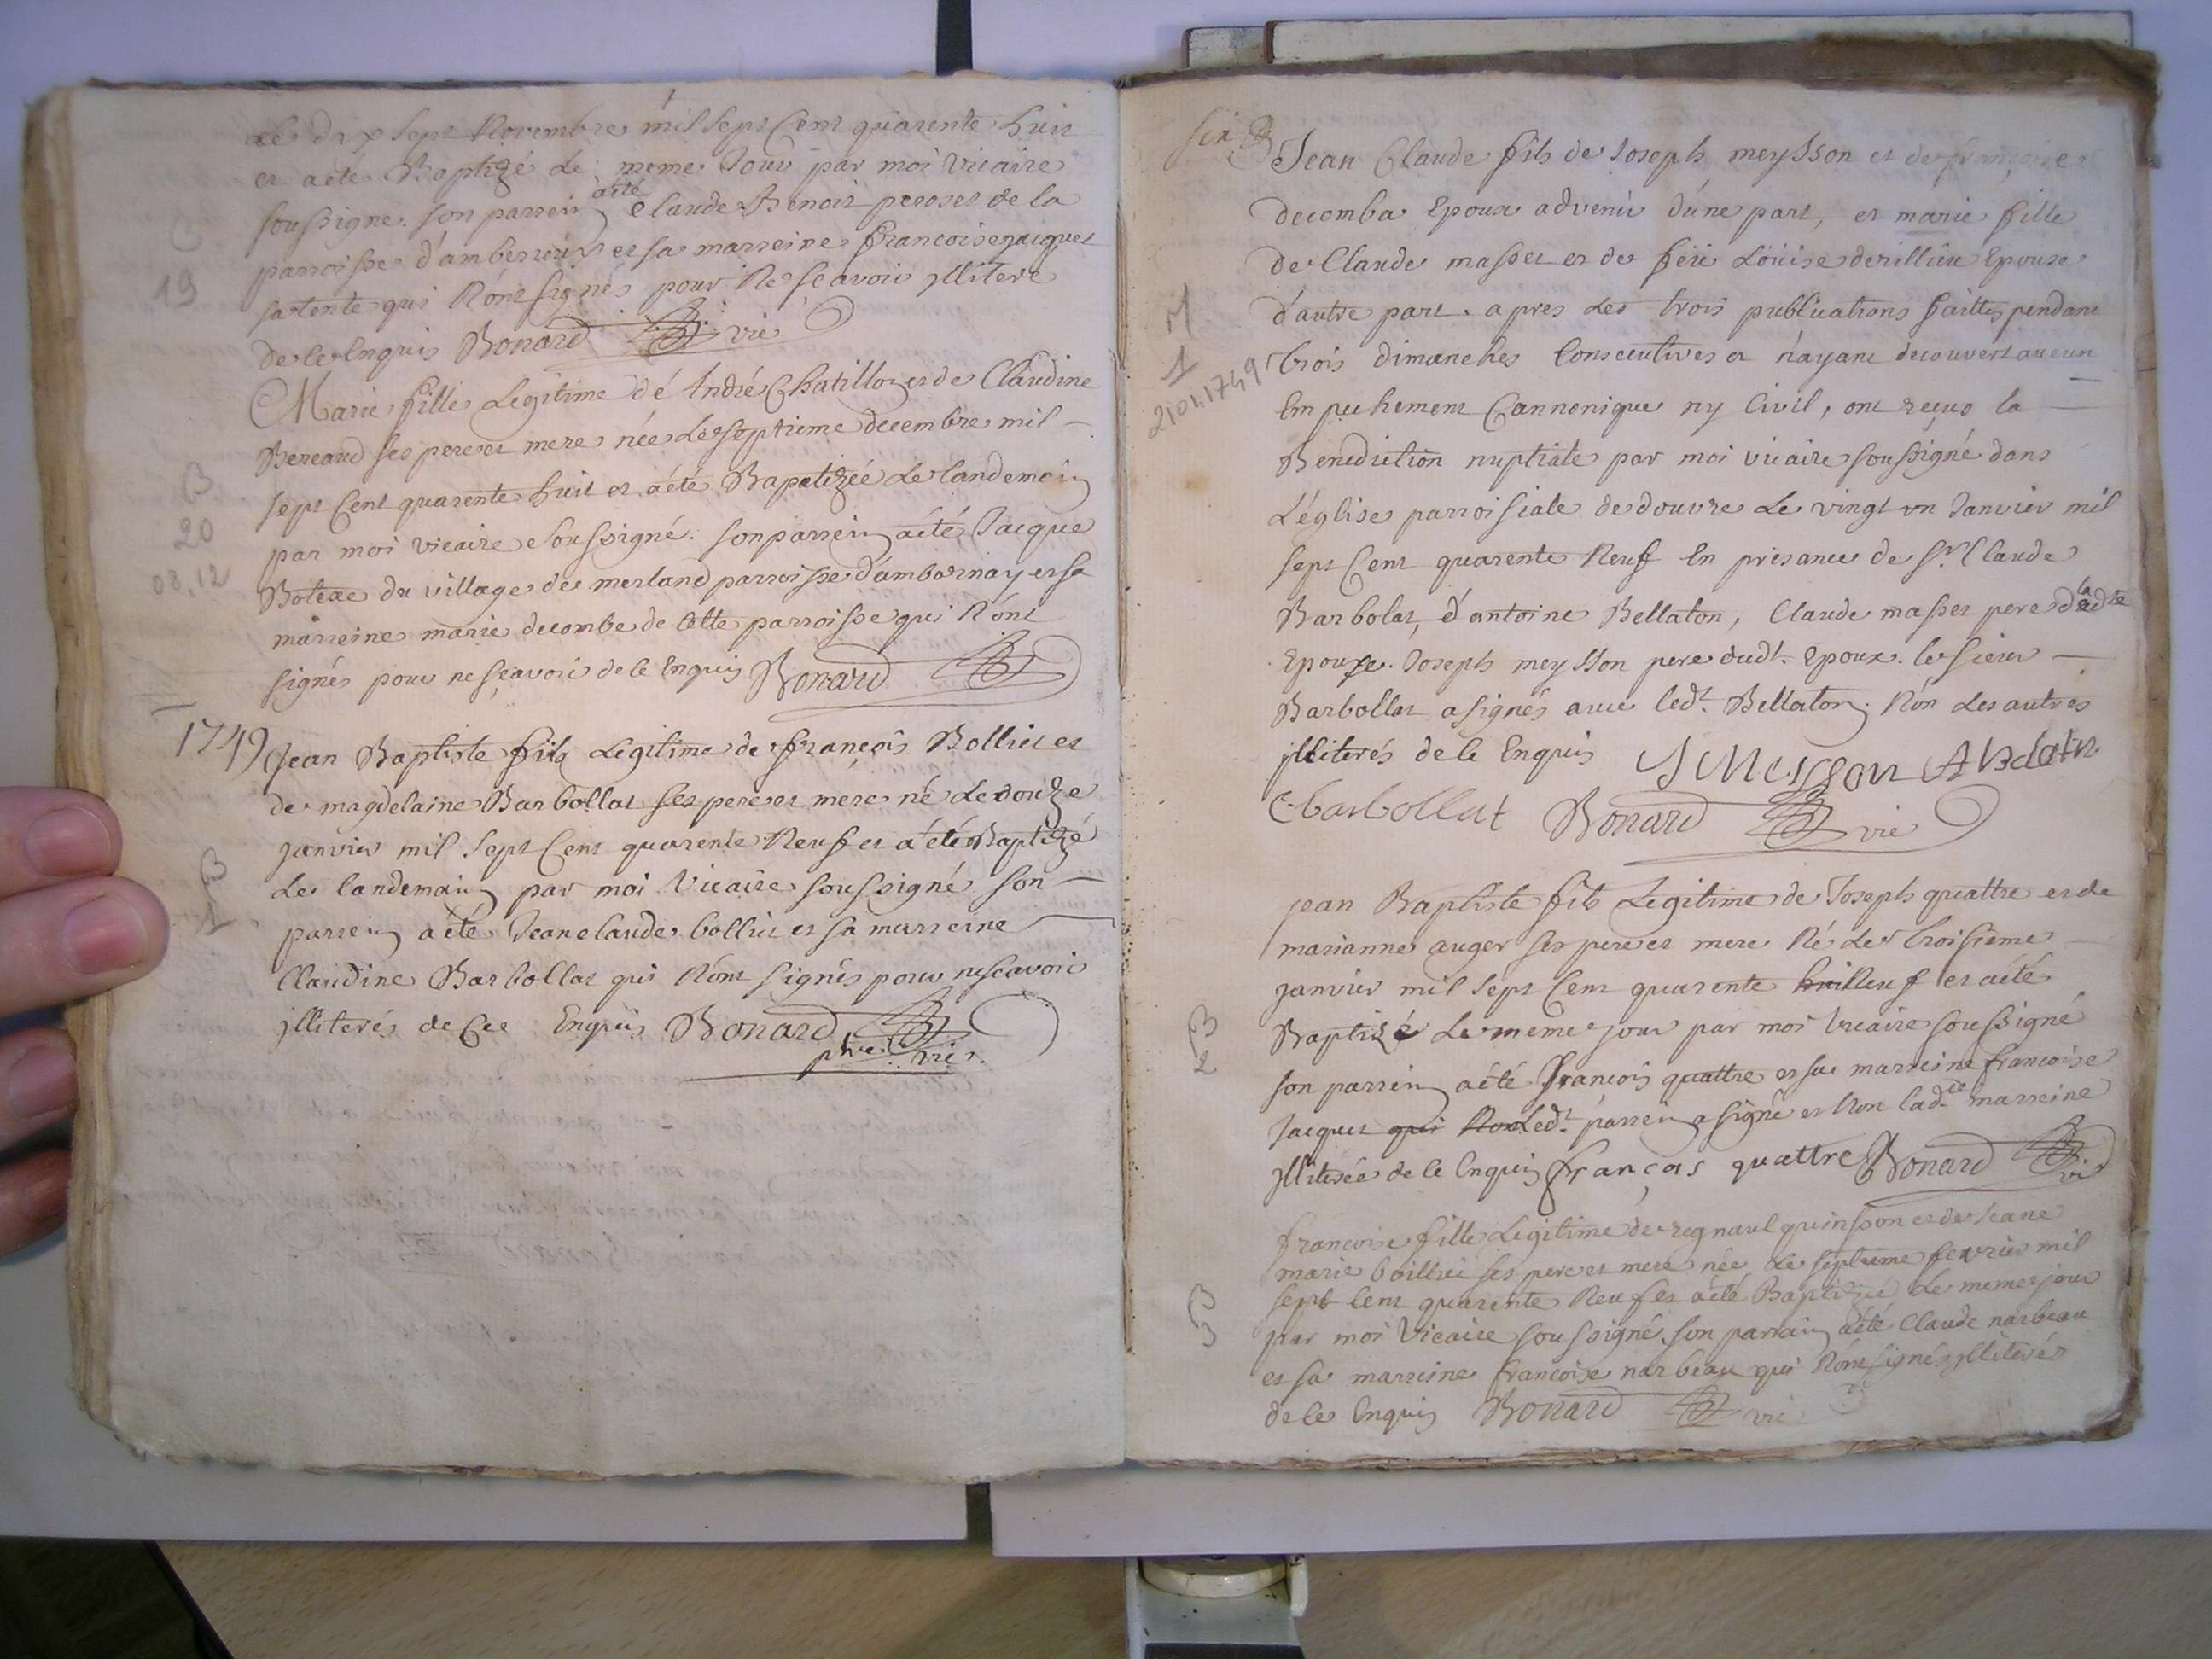 Le dix sept Novembre mil sept Cent quarente huit
et aété Baptizé Le meme Jour par moi Vicaire
soussigné. son parrein aété Claude Benoit peroset de la
B
19
parroisse d'amberieux et sa marreine francoise jacquet
sa tente qui N'ont signés pour Ne scavoir jlliteré
de Ce Enquis Bonard vic
Marie fille Legitime de André Chatillon et de Claudine
Bereard ses pere et mere née Le septieme decembre mil
B
20
08.12
sept Cent quarente huit et aété Bapatizée Le landemain
par moi vicaire soussigné. son parrein aété Jacque
Boteae du village de merland parroisse d'ambournay et sa
marreine marie decombe de Cette parroisse qui N'ont
signés pour ne sçavoir de Ce Enquis Bonard
1749
Jean Baptiste fils Legitime de françois Bolliet et
de magdelaine Barbollat ses pere et mere né Le douze
janvier mil sept Cent quarente Neuf et a été Baptizé
B
1
Le landemain par moi Vicaire soussigné son
parrein a été Jean claude bolliet et sa marreine
Claudine Barbollat qui N'ont signés pour ne scavoir
jlliterés de Cee Enquis Bonard
ptre vic.
six
Jean Claude fils de Joseph meysson et de francoise
decomba Epoux advenir d'une part, et marie fille
de Claude masset et de feue Loüise derillieu Epouse
M
1
21.01.1749
d'autre part. apres Les trois publications faittes pendant
trois dimanches Consecutives et n'ayant decouvert aucun
Empechement Cannonique ny Civil, ont reçus la
Benediction nuptiale par moi vicaire soussigné dans
L'église parroissiale de douvre Le vingt un Janvier mil
sept Cent quarente Neuf En presance de Sr. Claude
Barbolat, d'antoine Bellaton, Claude masset pere de ladte
Epouse. Joseph meysson pere dudt. Epoux. le sieur
Barbollat a signés avec ledt. Bellaton. Non Les autres
jlliterés de Ce Enquis J Meysson
C. barbollat Bonard vic
jean Baptiste fils Legitime de Joseph quattre et de
marianne auger ses pere et mere Né Le troisieme
janvier mil sept Cent quarente huit Neuf et aété
B
2
Baptizé Le meme jour par moi Vicaire soussigné
son parrein aété francois quattre et sa marreine francoise
Jacquet qui Non Ledt. parrein a signé et Non ladte marreine
jlliterée de Ce Enquis françois quattre Bonard vic
francoise fille Legitime de regnaul quinsson et de Jeane
marie bolliet ses pere et mere née Le septieme fevrier mil
B
3
sept Cent quarente Neuf et aété Baptizée Le meme jour
par moi Vicaire soussigné. son parrain aété Claude narbeau
et sa marreine francoise narbeau qui N'ont signés jlliterés
de Ce Enquis Bonard vic